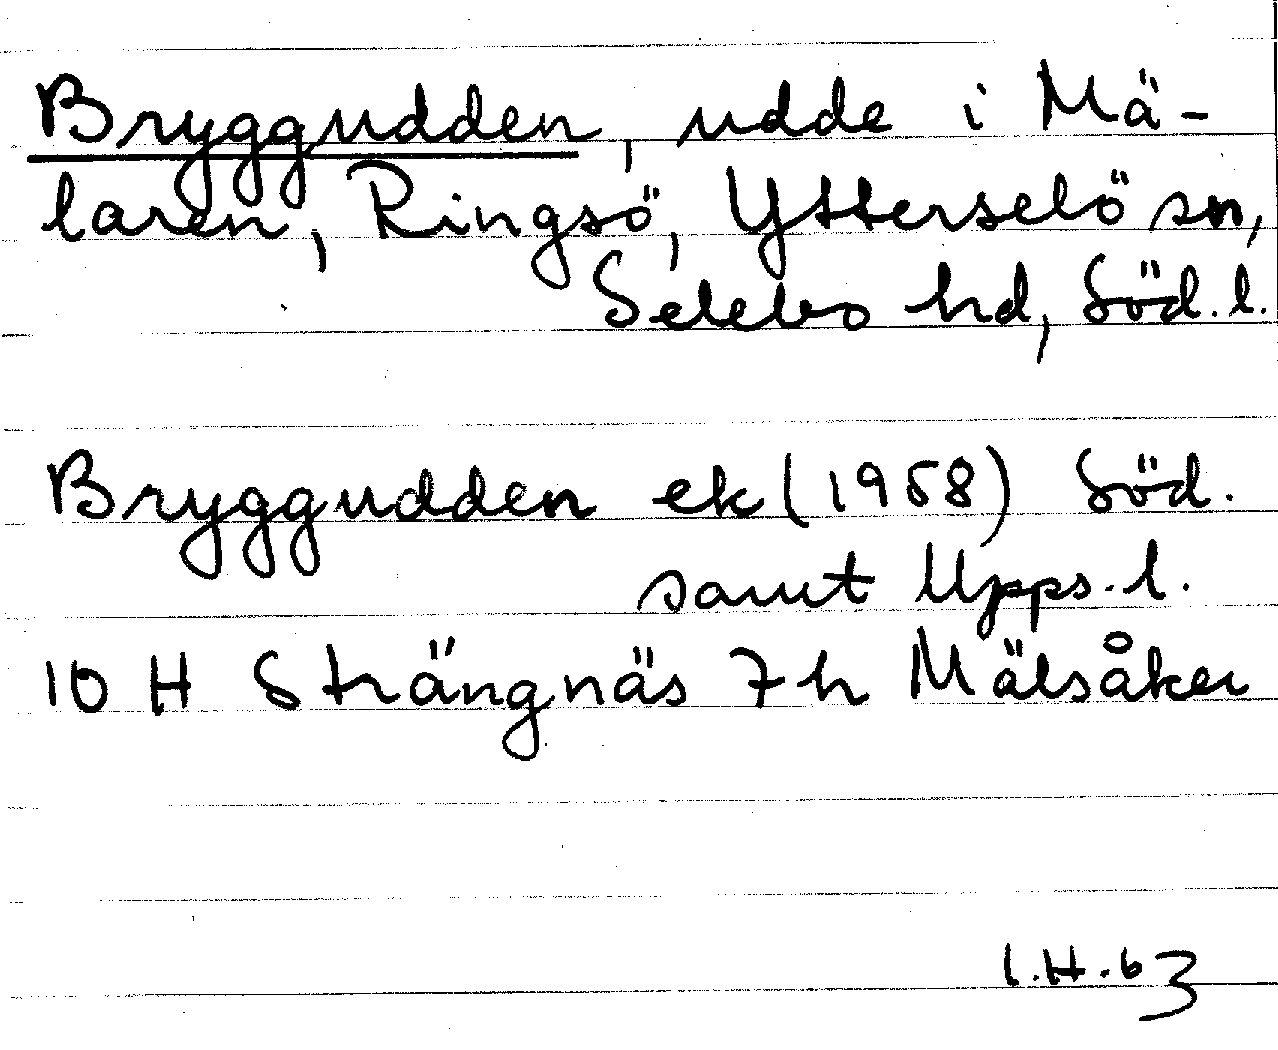 Bryggudden, udde i Mä-
laren, Ringsö, Ytterselö sn,
Selebo hd, Söd. l.
Bryggudden ek (1958) Söd.
samt Upps. l.
10 H Strängnäs 7h Mälsåker
I.H. 63